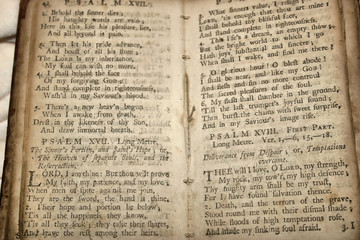 PSALM XVII.
2. Behold the sinner
His haughty words are vain;
Here in this life he pleasure
And all beyond is pain.
3. Then let his pride advance,
And boast of all his store;
The LORD is my inheritance,
My soul can with no more.
4. I shall behold the face
Of my forgiving GOD;
And stand complete in righteousness,
Wash'd in my Saviour's blood.
5. There's a new heav'n begun
When I awake from death,
Drest in the likeness of thy Son,
And draw immortal breath.
PSALM XVII. Long Metre.
The Sinner's Portion, and Saint's Hope; or,
The Heaven of separate Souls, and the
Resurrection.
LORD, I am thine: But thou wilt prove
My faith, my patience, and my love:
When men of spite against me join,
They are the sword, the hand is thine.
2. Their hope and portion lie below;
'Tis all the happiness they know,
'Tis all they seek; they take their shares,
And leave the rest among their heirs.
3. What sinners value, I resign;
LORD, 'tis enough that thou art mine:
I shall behold thy blissful face,
And stand complete in righteousness.
4. This life's a dream, an empty show;
But the bright world to which I go
Hath joys substantial and sincere;
When shall I wake, and find me there?
5. O glorious hour! O blest abode!
I shall be near, and like my GOD!
And flesh and sin no more control
The sacred pleasures of the soul.
6. My flesh shall slumber in the ground,
'Till the last trumpet's joyful sound;
Then burst the chains with sweet surprise,
And in my Saviour's image rise.
PSALM XVIII. FIRST PART.
Long Metre.
Deliverance from Despair; or, Temptations
overcome.
THEE will I love, O LORD, my strength,
My rock, my tow'r, my high defence;
Thy mighty arm shall be my trust,
For I have found salvation thence.
2. Death, and the terrors of the grave,
Stood round me with their dismal shade;
While floods of high temptations rose,
And made my sinking soul afraid.